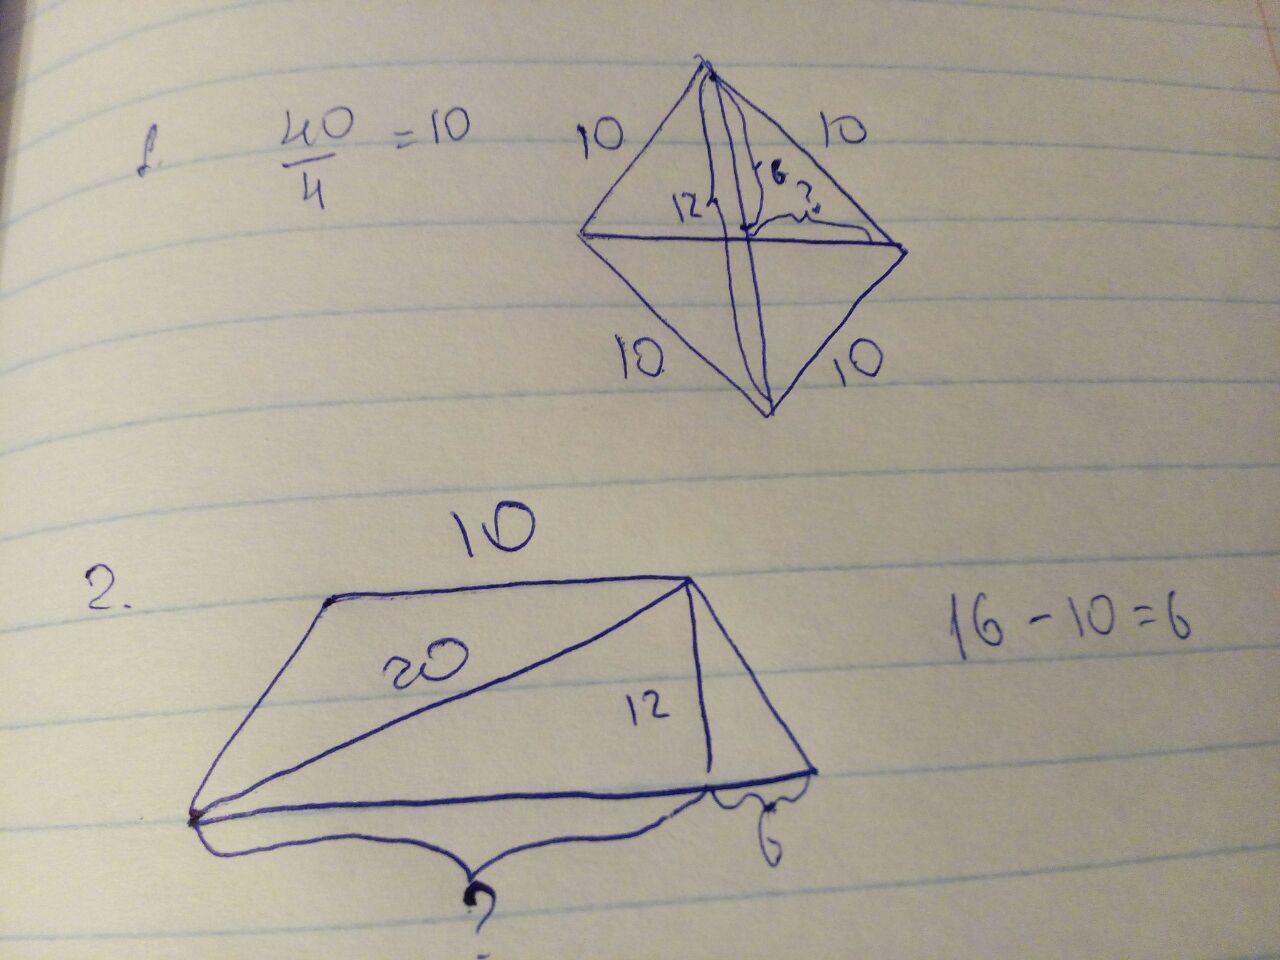 1. 40/4 = 10
10 10
12 6 ?
10 10
2. 10
20 12
16 - 10 = 6
6
?